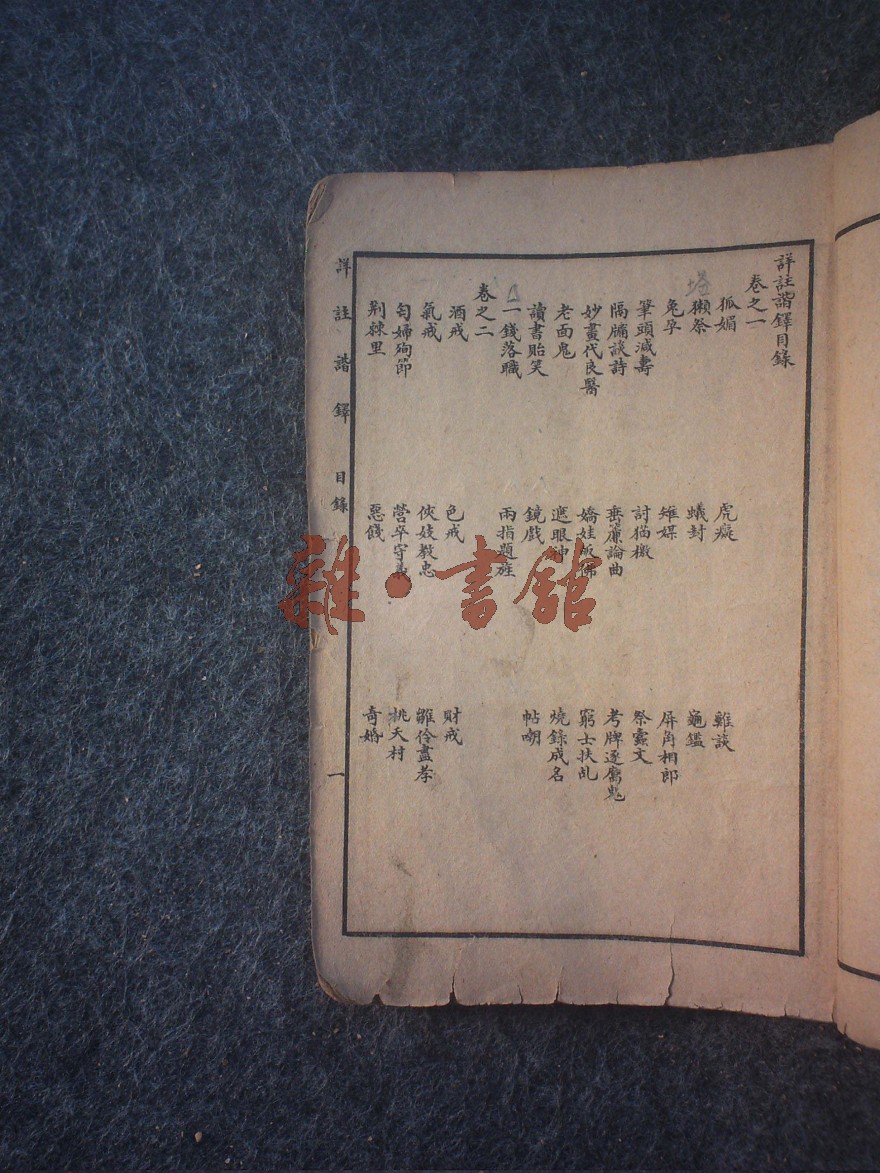 詳註諧鐸目錄
卷之一
狐媚 虎癡 雞談
獺祭 蟻封 龜鑑
兔孕 雉媒 屏角相郎
筆頭減壽 討猫檄 祭蠹文
隔牗談詩 垂簾論曲 考牌逐腐鬼
妙畫代良醫 嬌娃皈佛 窮士扶乩
老面鬼 遮眼神 燒錄成名
讀書貽笑 鏡戲 帖嘲
一錢落職 兩指題旌
卷之二
酒戒 色戒 財戒
氣戒 俠妓教忠 雛伶盡孝
匄婦殉節 營卒守義 桃夭村
荆棘里 惡餞 奇婚
詳註諧鐸 目錄 一
雜·書館